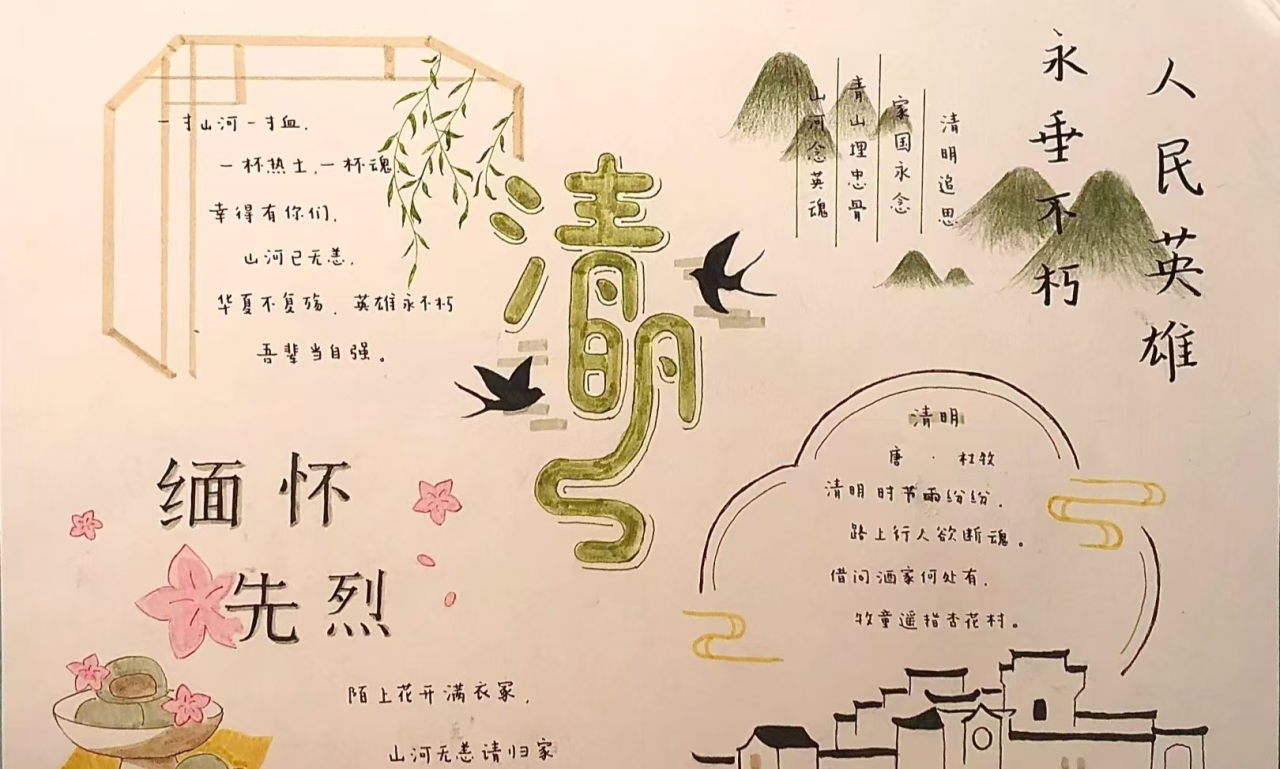 一寸山河一寸血,
一杯热土,一杯魂
幸得有你们,
山河已无恙,
华夏不复殇,英雄永不朽
吾辈当自强。
清明
清明追思
家国永念
青山埋忠骨
山河念英魂
人民英雄
永垂不朽
缅怀
先烈
陌上花开满衣冢,
山河无恙请归家
清明
唐·杜牧
清明时节雨纷纷,
路上行人欲断魂。
借问酒家何处有,
牧童遥指杏花村。